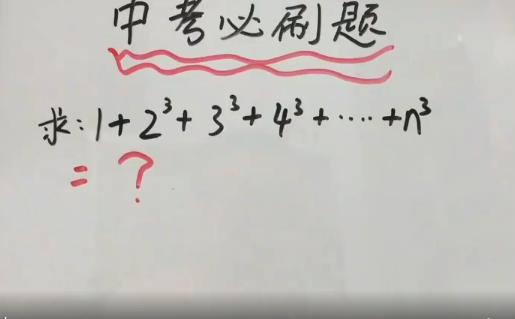 中考必刷题
求:1+2³+3³+4³+……+n³
=?